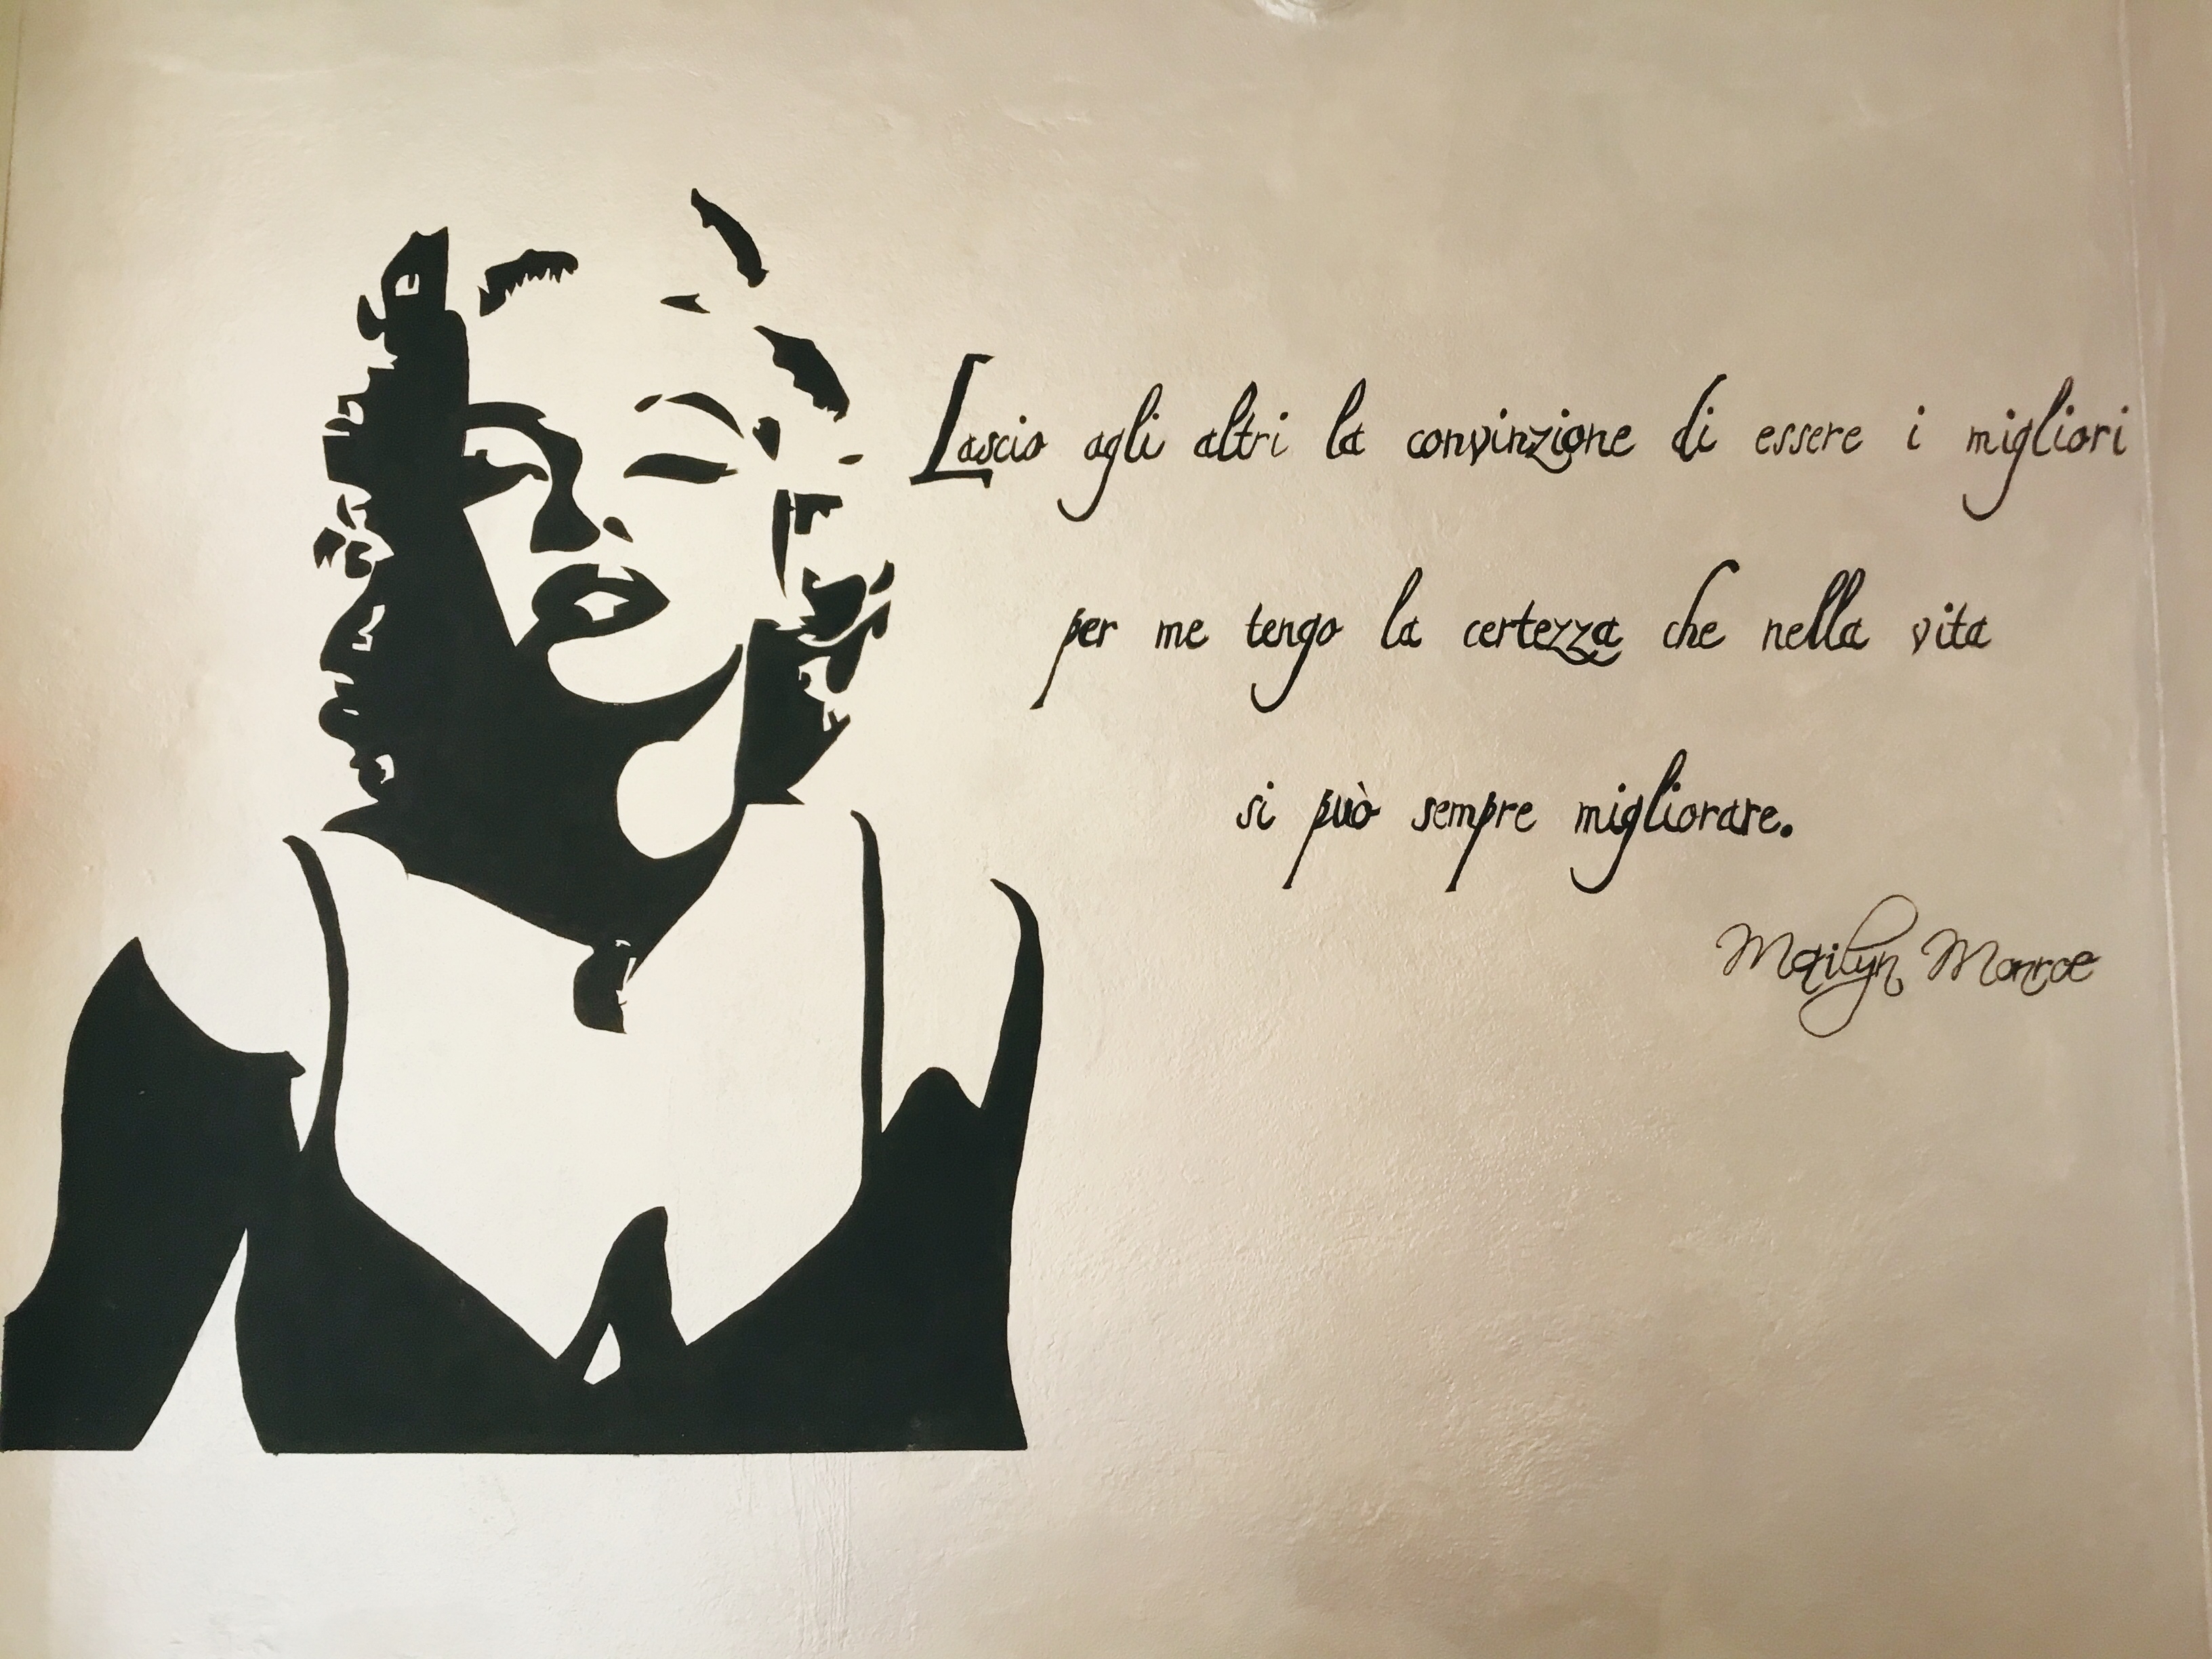 Lascio agli altri la convinzione di essere i migliori
per me tengo la certezza che nella vita
si può sempre migliorare.
Marilyn Monroe